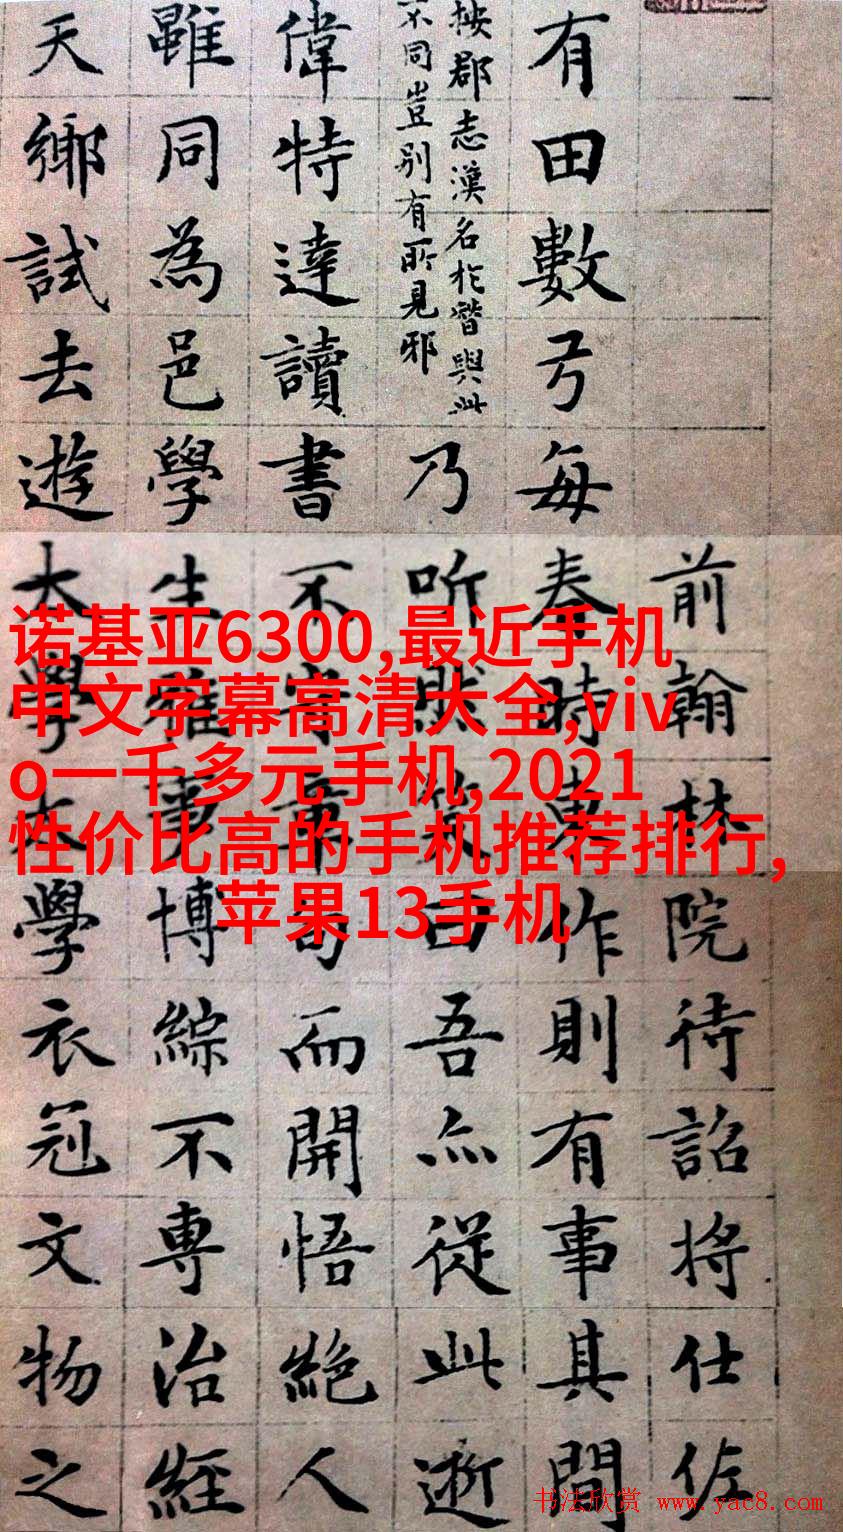 前翰林院待詔將仕佐
有田數弓每春時東作則有事其間
按郡志漢名於潛與此
不同豈别有所見邪
乃听然笑曰吾亦從此逝
偉特達讀書不守章句而開悟絶人
雖同為邑學生雅事博綜不専治經
天鄉試去遊太學太學衣冠文物之
诺基亚6300,最近手机
中文字幕高清大全,viv
o一千多元手机,2021
性价比高的手机推荐排行,
苹果13手机
书法欣赏 www.yac8.com